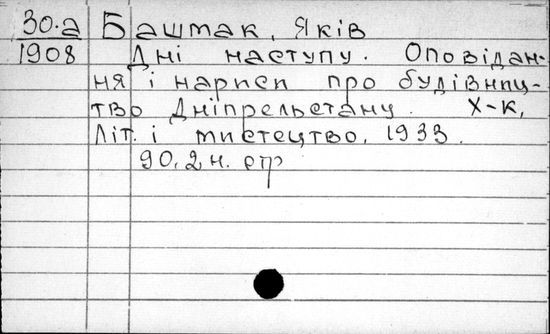 30.а Башмак, Яків
1908 Дні наступу. Оповідан-
ня і нариси про будівниц-
тво Дніпрельстану. Х-К,
Літ. і мистецтво, 1933.
90, 2 н. стр